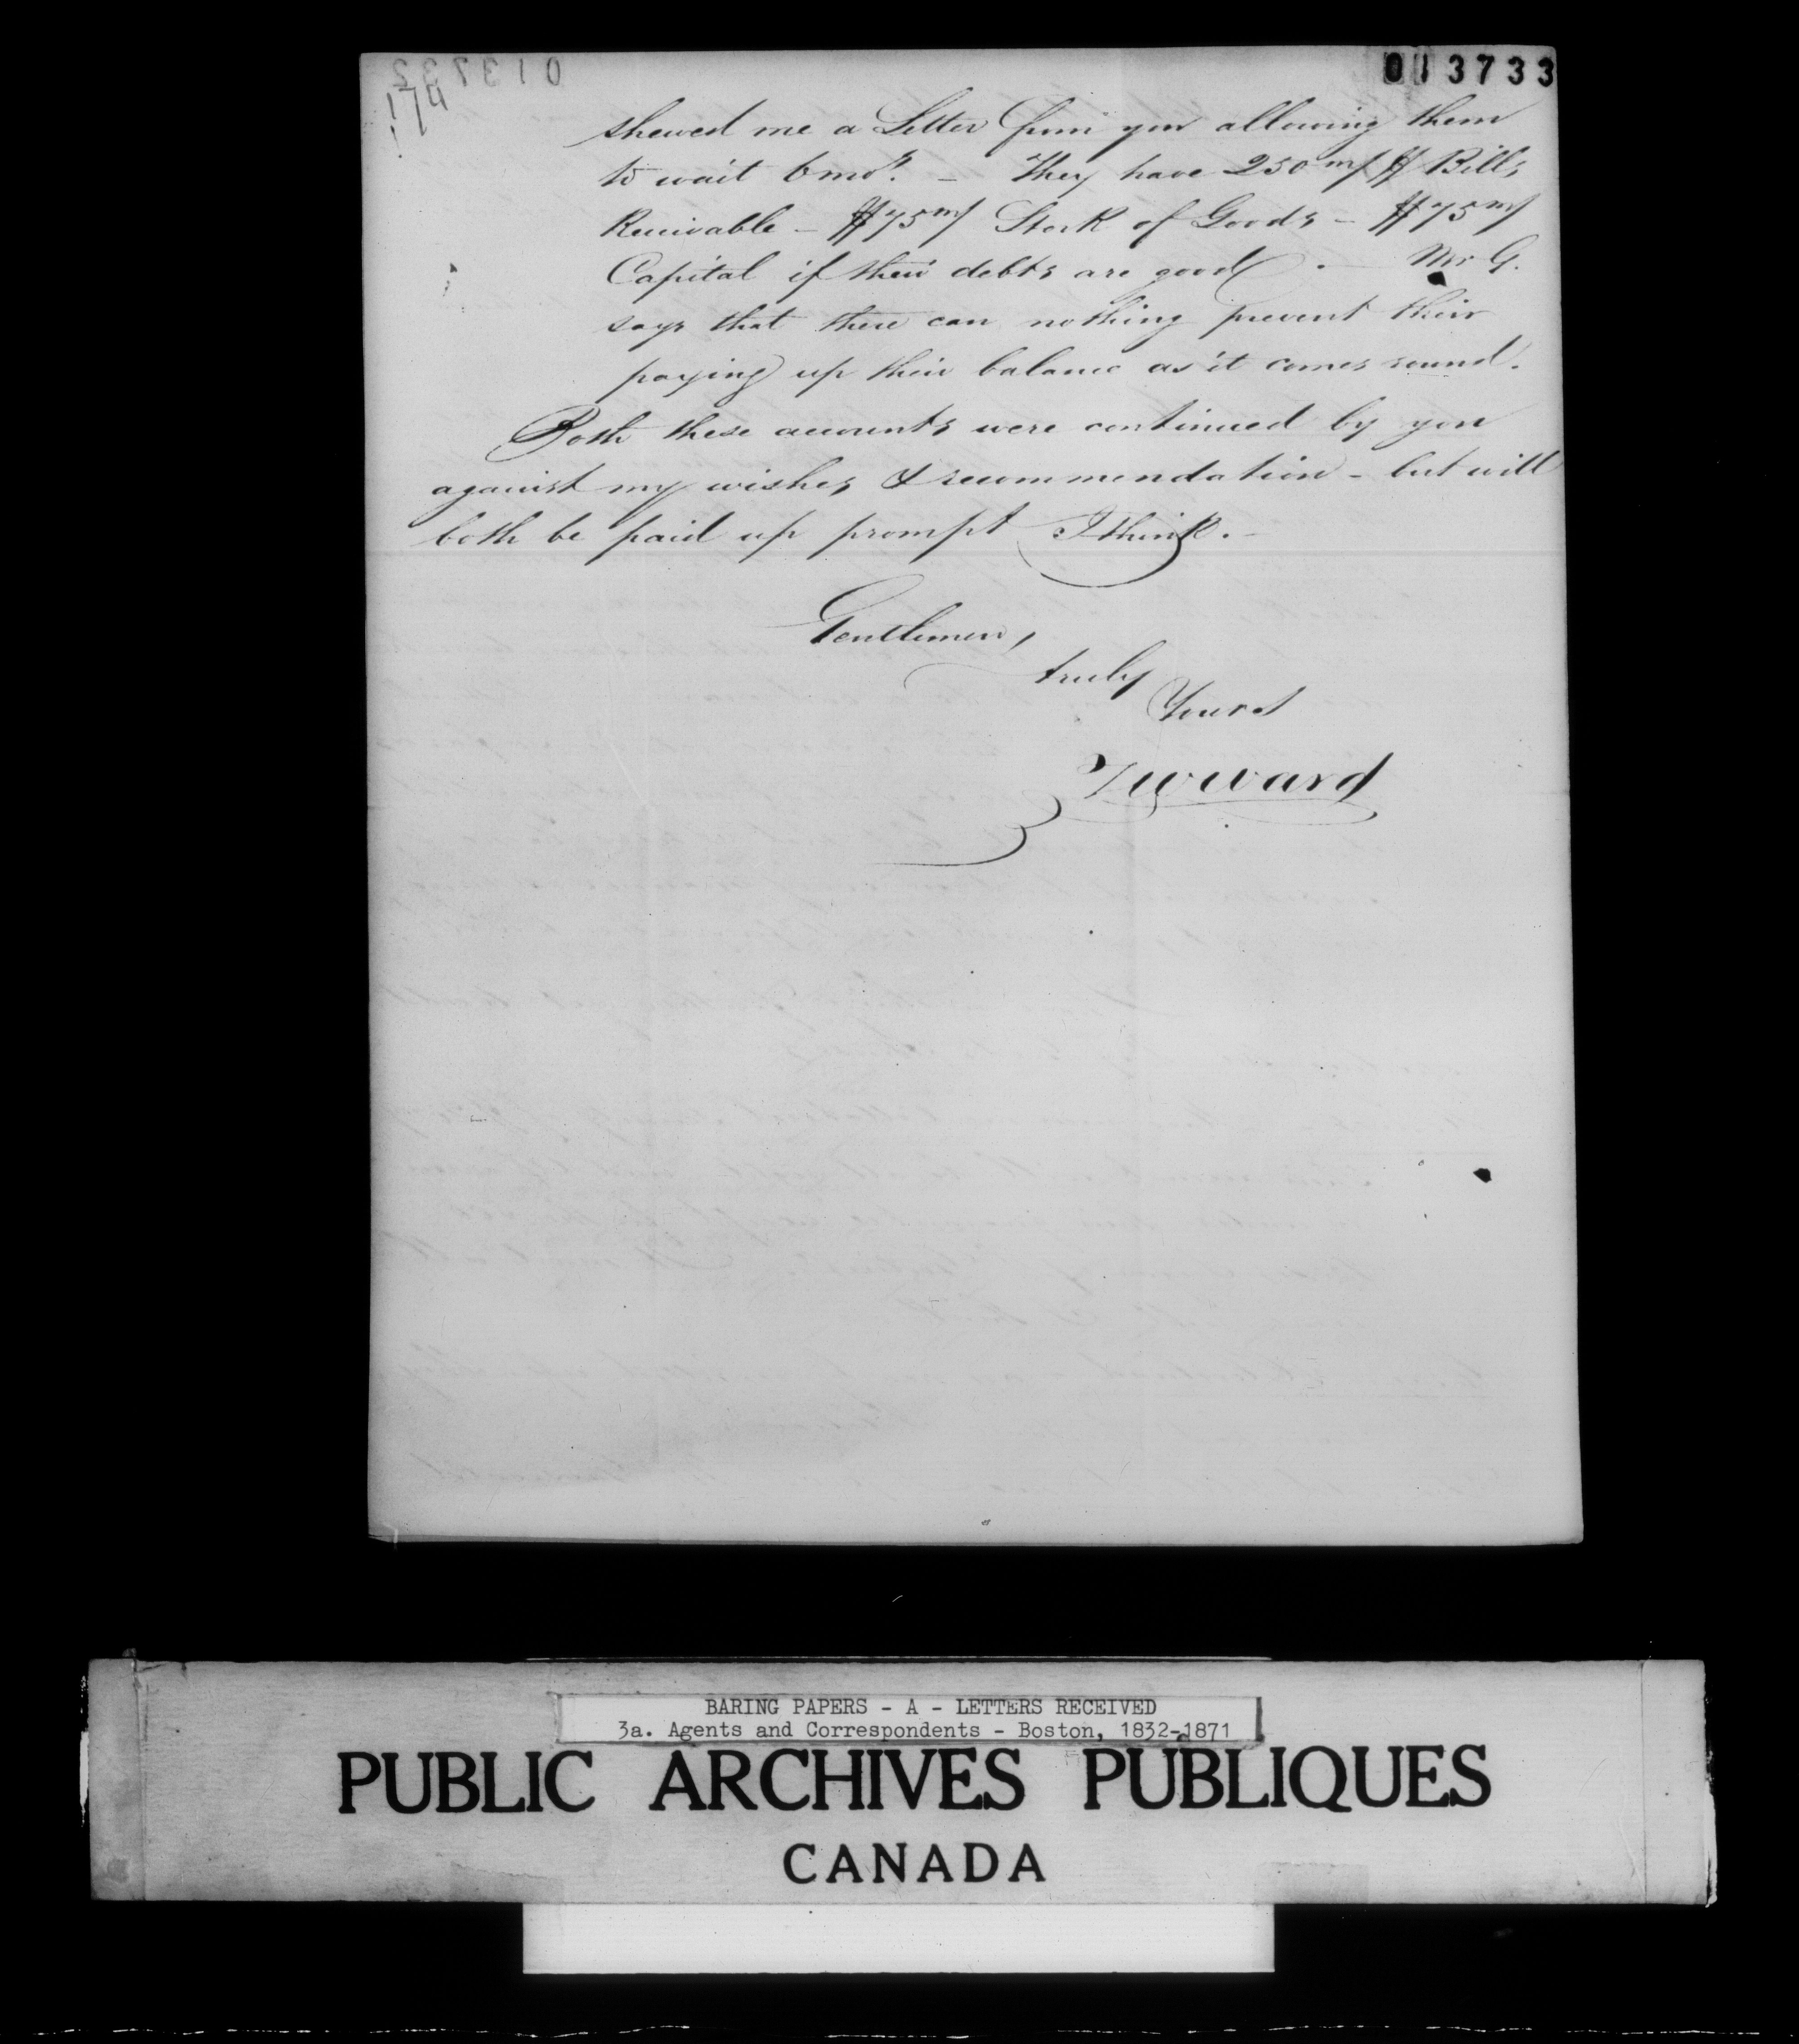 013733
shewed me a Letter from you allowing them
to wait 6 mos. – They have 250 m/ $ Bills
Receivable – $75 m/ Stock of Goods – $75 m/
Capital if their debts are good. – Mr G.
says that there can nothing prevent their
paying up their balance as it comes round.
Both these accounts were continued by you
against my wishes & recommendation – but will
both be paid up prompt I think. –
Gentlemen,
truly
Yours
T W Ward
BARING PAPERS - A - LETTERS RECEIVED
3a. Agents and Correspondents - Boston, 1832-1871
PUBLIC ARCHIVES PUBLIQUES
CANADA